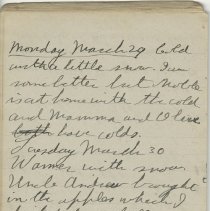 Monday March 29 Cold
with a little snow. I am
some better but Noble
is at home with the cold
and Mamma and Olive
both have colds.
Tuesday March 30
Warmer with snow.
Uncle Andrew brought
in the apples which I